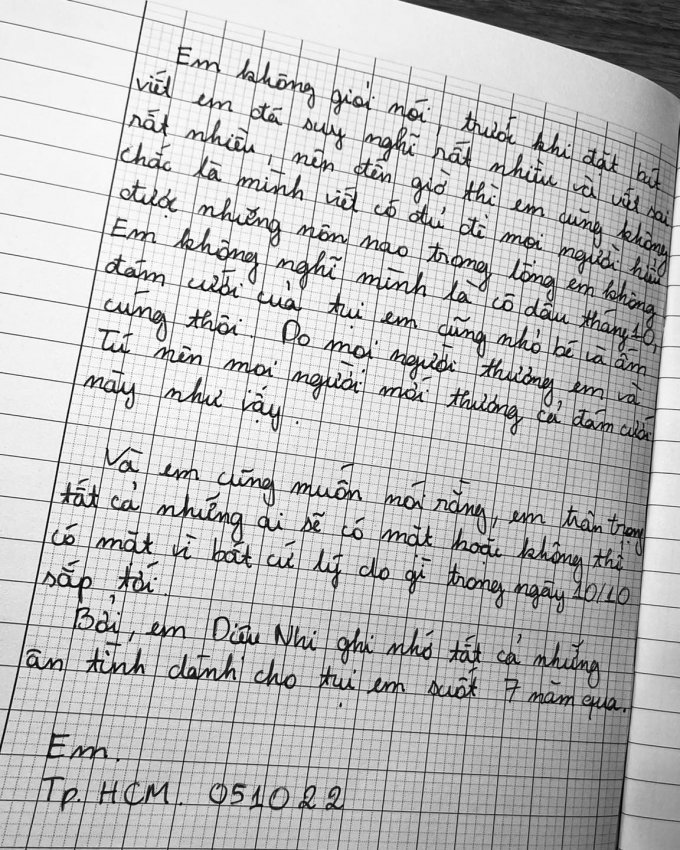 Em không giỏi nói, trước khi đặt bút
viết em đã suy nghĩ rất nhiều và viết sai
rất nhiều, nên đến giờ thì em cũng không
chắc là mình viết có đủ để mọi người hiểu
được những nôn nao trong lòng em không.
Em không nghĩ mình là cô dâu tháng 10,
đám cưới của tụi em cũng nhỏ bé và ấm
cúng thôi. Do mọi người thương em và
Tú nên mọi người mới thương cả đám cưới
này như vậy.
Và em cũng muốn nói rằng, em trân trọng
tất cả những ai sẽ có mặt hoặc không thể
có mặt vì bất cứ lý do gì trong ngày 10/10
sắp tới.
Bởi, em Diệu Nhi ghi nhớ tất cả những
ân tình dành cho tụi em suốt 7 năm qua.
Em.
Tp. HCM. 051022